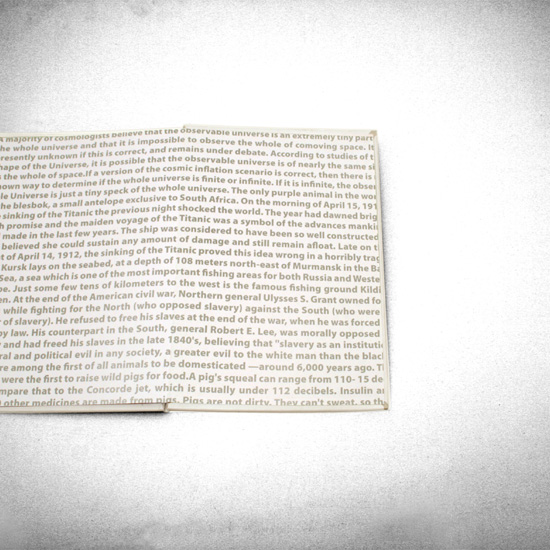 A majority of cosmologists believe that the observable universe is an extremely tiny part
the whole universe and that it is impossible to observe the whole of comoving space. It
presently unknown if this is correct, and remains under debate. According to studies of t
shape of the Universe, it is possible that the observable universe is of nearly the same si
the whole of space.If a version of the cosmic inflation scenario is correct, then there is
nown way to determine if the whole universe is finite or infinite. If it is infinite, the obser
le Universe is just a tiny speck of the whole universe. The only purple animal in the wor
the blesbok, a small antelope exclusive to South Africa. On the morning of April 15, 191
sinking of the Titanic the previous night shocked the world. The year had dawned brig
h promise and the maiden voyage of the Titanic was a symbol of the advances manki
made in the last few years. The ship was considered to have been so well constructed
believed she could sustain any amount of damage and still remain afloat. Late on t
t of April 14, 1912, the sinking of the Titanic proved this idea wrong in a horribly trag
Kursk lays on the seabed, at a depth of 108 meters north-east of Murmansk in the Ba
Sea, a sea which is one of the most important fishing areas for both Russia and Weste
pe. Just some few tens of kilometers to the west is the famous fishing ground Kildi
en. At the end of the American civil war, Northern general Ulysses S. Grant owned fo
while fighting for the North (who opposed slavery) against the South (who were
r of slavery). He refused to free his slaves at the end of the war, when he was forced
by law. His counterpart in the South, general Robert E. Lee, was morally opposed
and had freed his slaves in the late 1840's, believing that "slavery as an institutio
ral and political evil in any society, a greater evil to the white man than the blac
re among the first of all animals to be domesticated —around 6,000 years ago. T
were the first to raise wild pigs for food.A pig's squeal can range from 110- 15 de
mpare that to the Concorde jet, which is usually under 112 decibels. Insulin a
other medicines are made from pigs. Pigs are not dirty. They can't sweat, so th